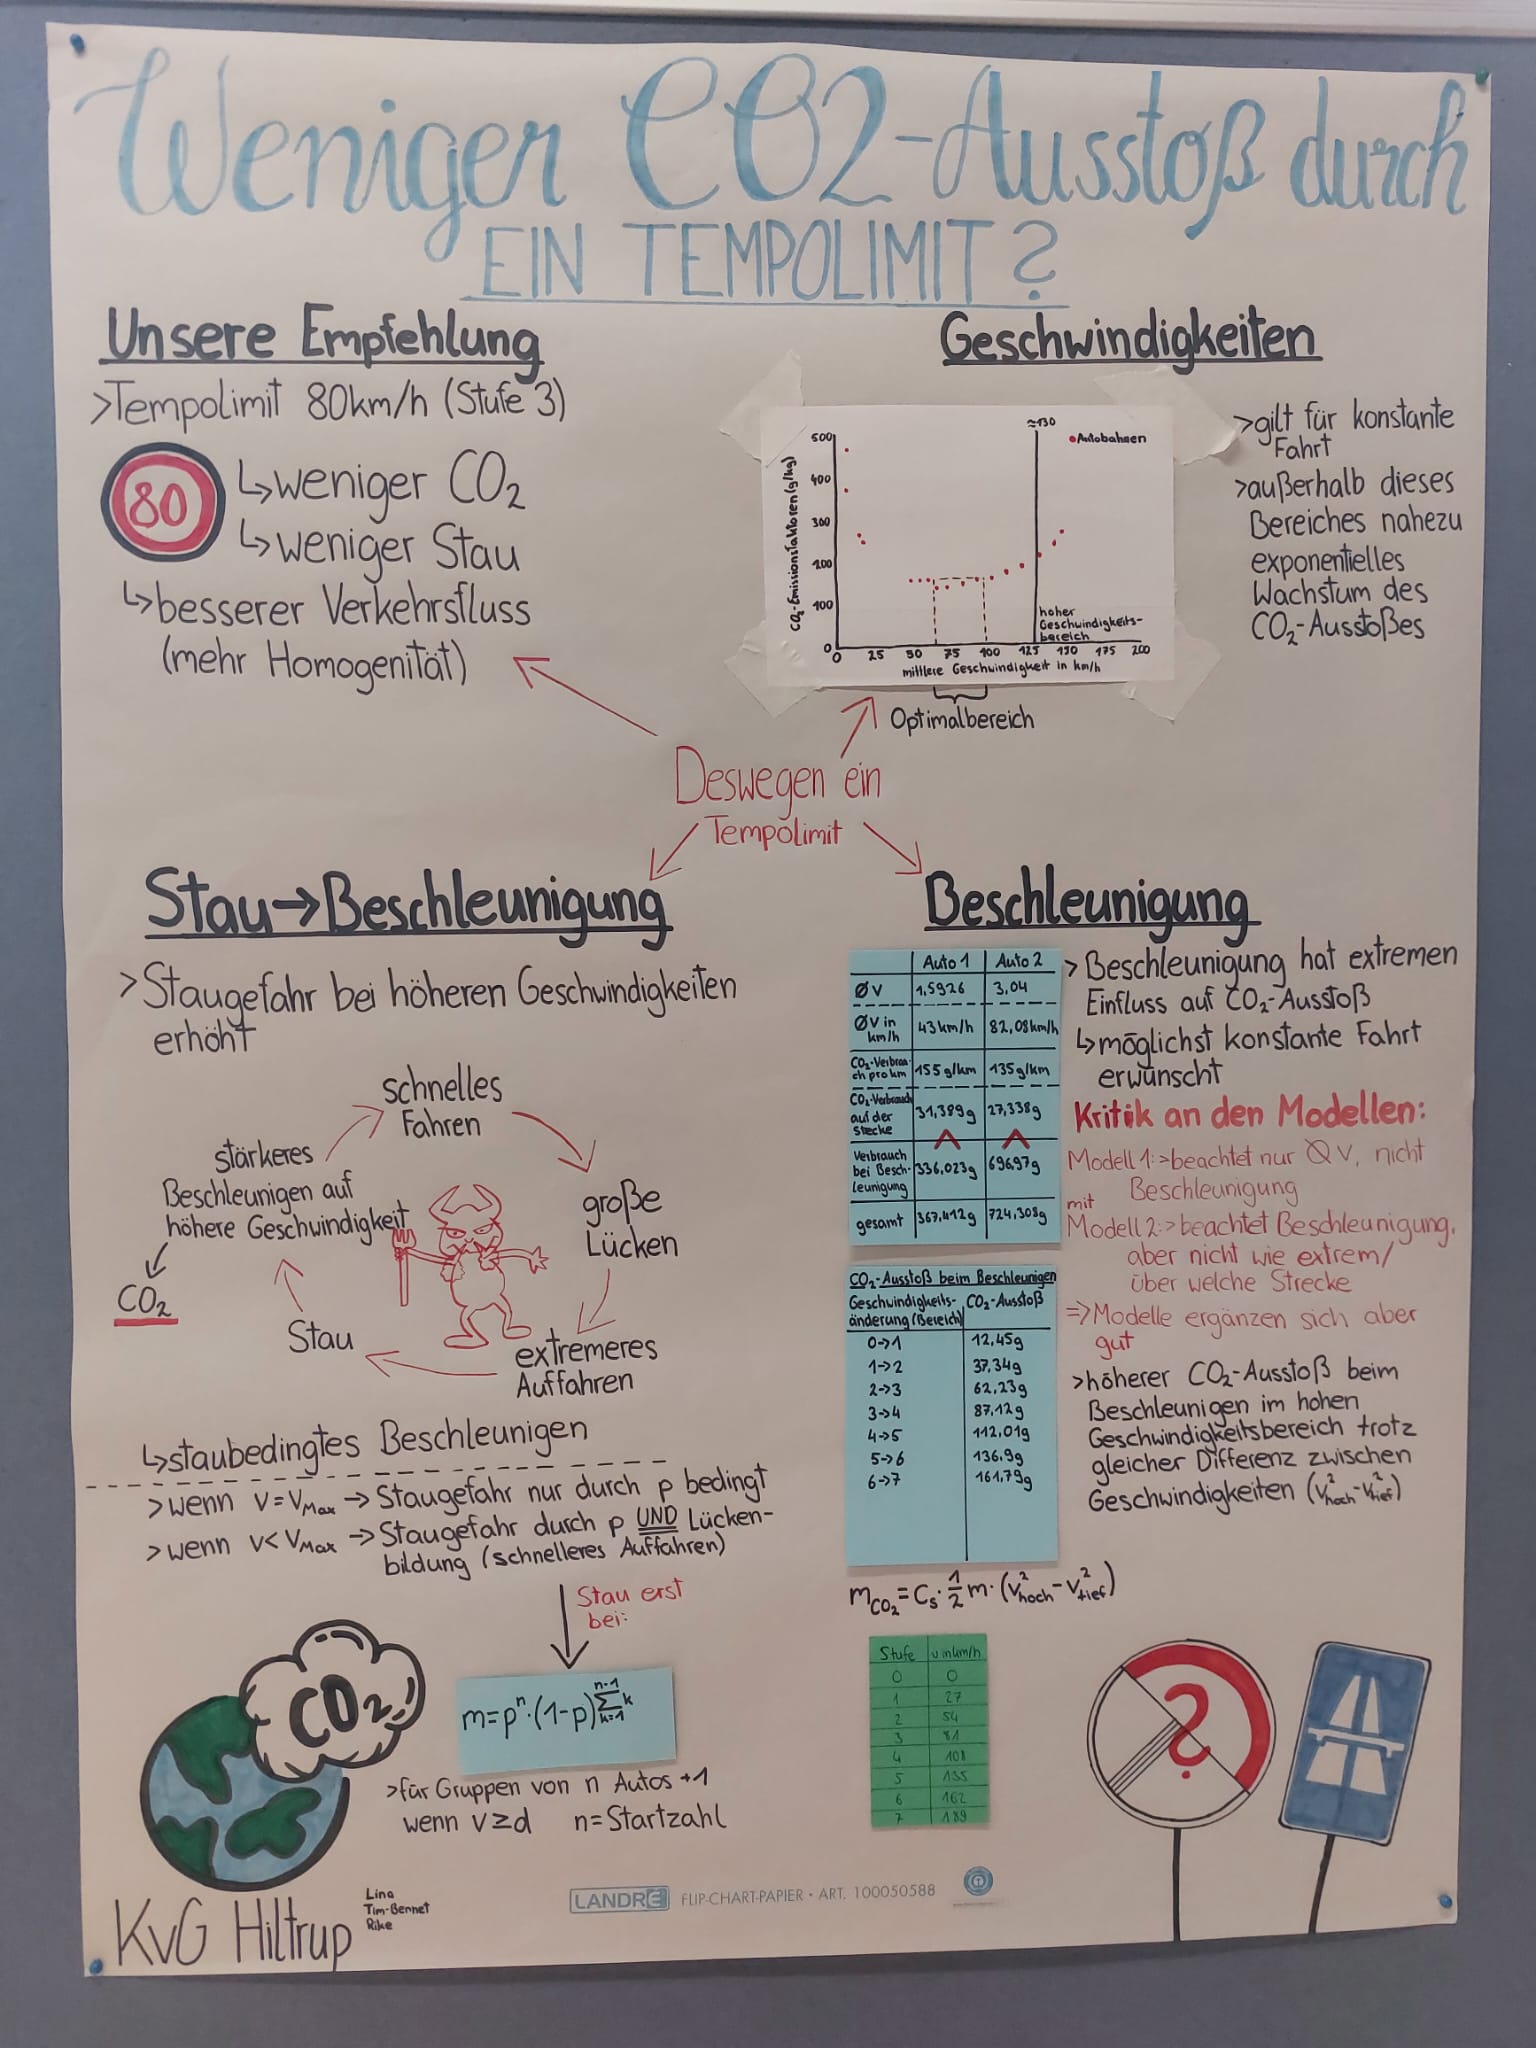 Weniger CO2-Ausstoß durch
EIN TEMPOLIMIT?
Unsere Empfehlung
>Tempolimit 80km/h (Stufe 3)
80
↳weniger CO₂
↳weniger Stau
↳besserer Verkehrsfluss
(mehr Homogenität)
Geschwindigkeiten
≈130
•Autobahnen
CO₂-Emissionsfaktoren (g/kg)
500
400
300
200
100
0
hoher
Geschwindigkeits-
bereich
0 25 50 75 100 125 150 175 200
mittlere Geschwindigkeit in km/h
Optimalbereich
>gilt für konstante
Fahrt
>außerhalb dieses
Bereiches nahezu
exponentielles
Wachstum des
CO₂-Ausstoßes
Deswegen ein
Tempolimit
Stau→Beschleunigung
>Staugefahr bei höheren Geschwindigkeiten
erhöht
schnelles
Fahren
große
Lücken
extremeres
Auffahren
Stau
stärkeres
Beschleunigen auf
höhere Geschwindigkeit
CO₂
↳staubedingtes Beschleunigen
>wenn v=vMax → Staugefahr nur durch p bedingt
>wenn v<vMax → Staugefahr durch p UND Lücken-
bildung (schnelleres Auffahren)
Stau erst
bei:
m=pⁿ·(1-p)^∑k
n-1
k=1
>für Gruppen von n Autos +1
wenn v≥d n=Startzahl
CO2
KvG Hiltrup
Lina
Tim-Bennet
Rike
Beschleunigung
Auto 1 Auto 2
Øv 1,5926 3,04
Øv in km/h 43km/h 82,08km/h
CO₂-Verbrau-
ch pro km 155g/km 135g/km
CO₂-Verbrauch
auf der
Strecke 31,389g 27,338g
Verbrauch
bei Besch-
leunigung 336,023g 696,97g
gesamt 367,412g 724,308g
CO₂-Ausstoß beim Beschleunigen
Geschwindigkeits- CO₂-Ausstoß
änderung (Bereich)
0→1 12,45g
1→2 37,34g
2→3 62,23g
3→4 87,12g
4→5 112,01g
5→6 136,9g
6→7 161,79g
m CO₂=Cs·½m·(v²hoch-v²tief)
Stufe v in km/h
0 0
1 27
2 54
3 81
4 108
5 135
6 162
7 189
>Beschleunigung hat extremen
Einfluss auf CO₂-Ausstoß
↳möglichst konstante Fahrt
erwünscht
Kritik an den Modellen:
Modell 1:>beachtet nur Øv, nicht
Beschleunigung
mit
Modell 2:>beachtet Beschleunigung,
aber nicht wie extrem/
über welche Strecke
=>Modelle ergänzen sich aber
gut
>höherer CO₂-Ausstoß beim
Beschleunigen im hohen
Geschwindigkeitsbereich trotz
gleicher Differenz zwischen
Geschwindigkeiten (v²hoch-v²tief)
?
LANDRÉ FLIP-CHART-PAPIER • ART. 100050588